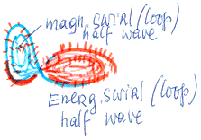 magn. swirl (loop)
half wave
Energ. swirl (loop)
half wave